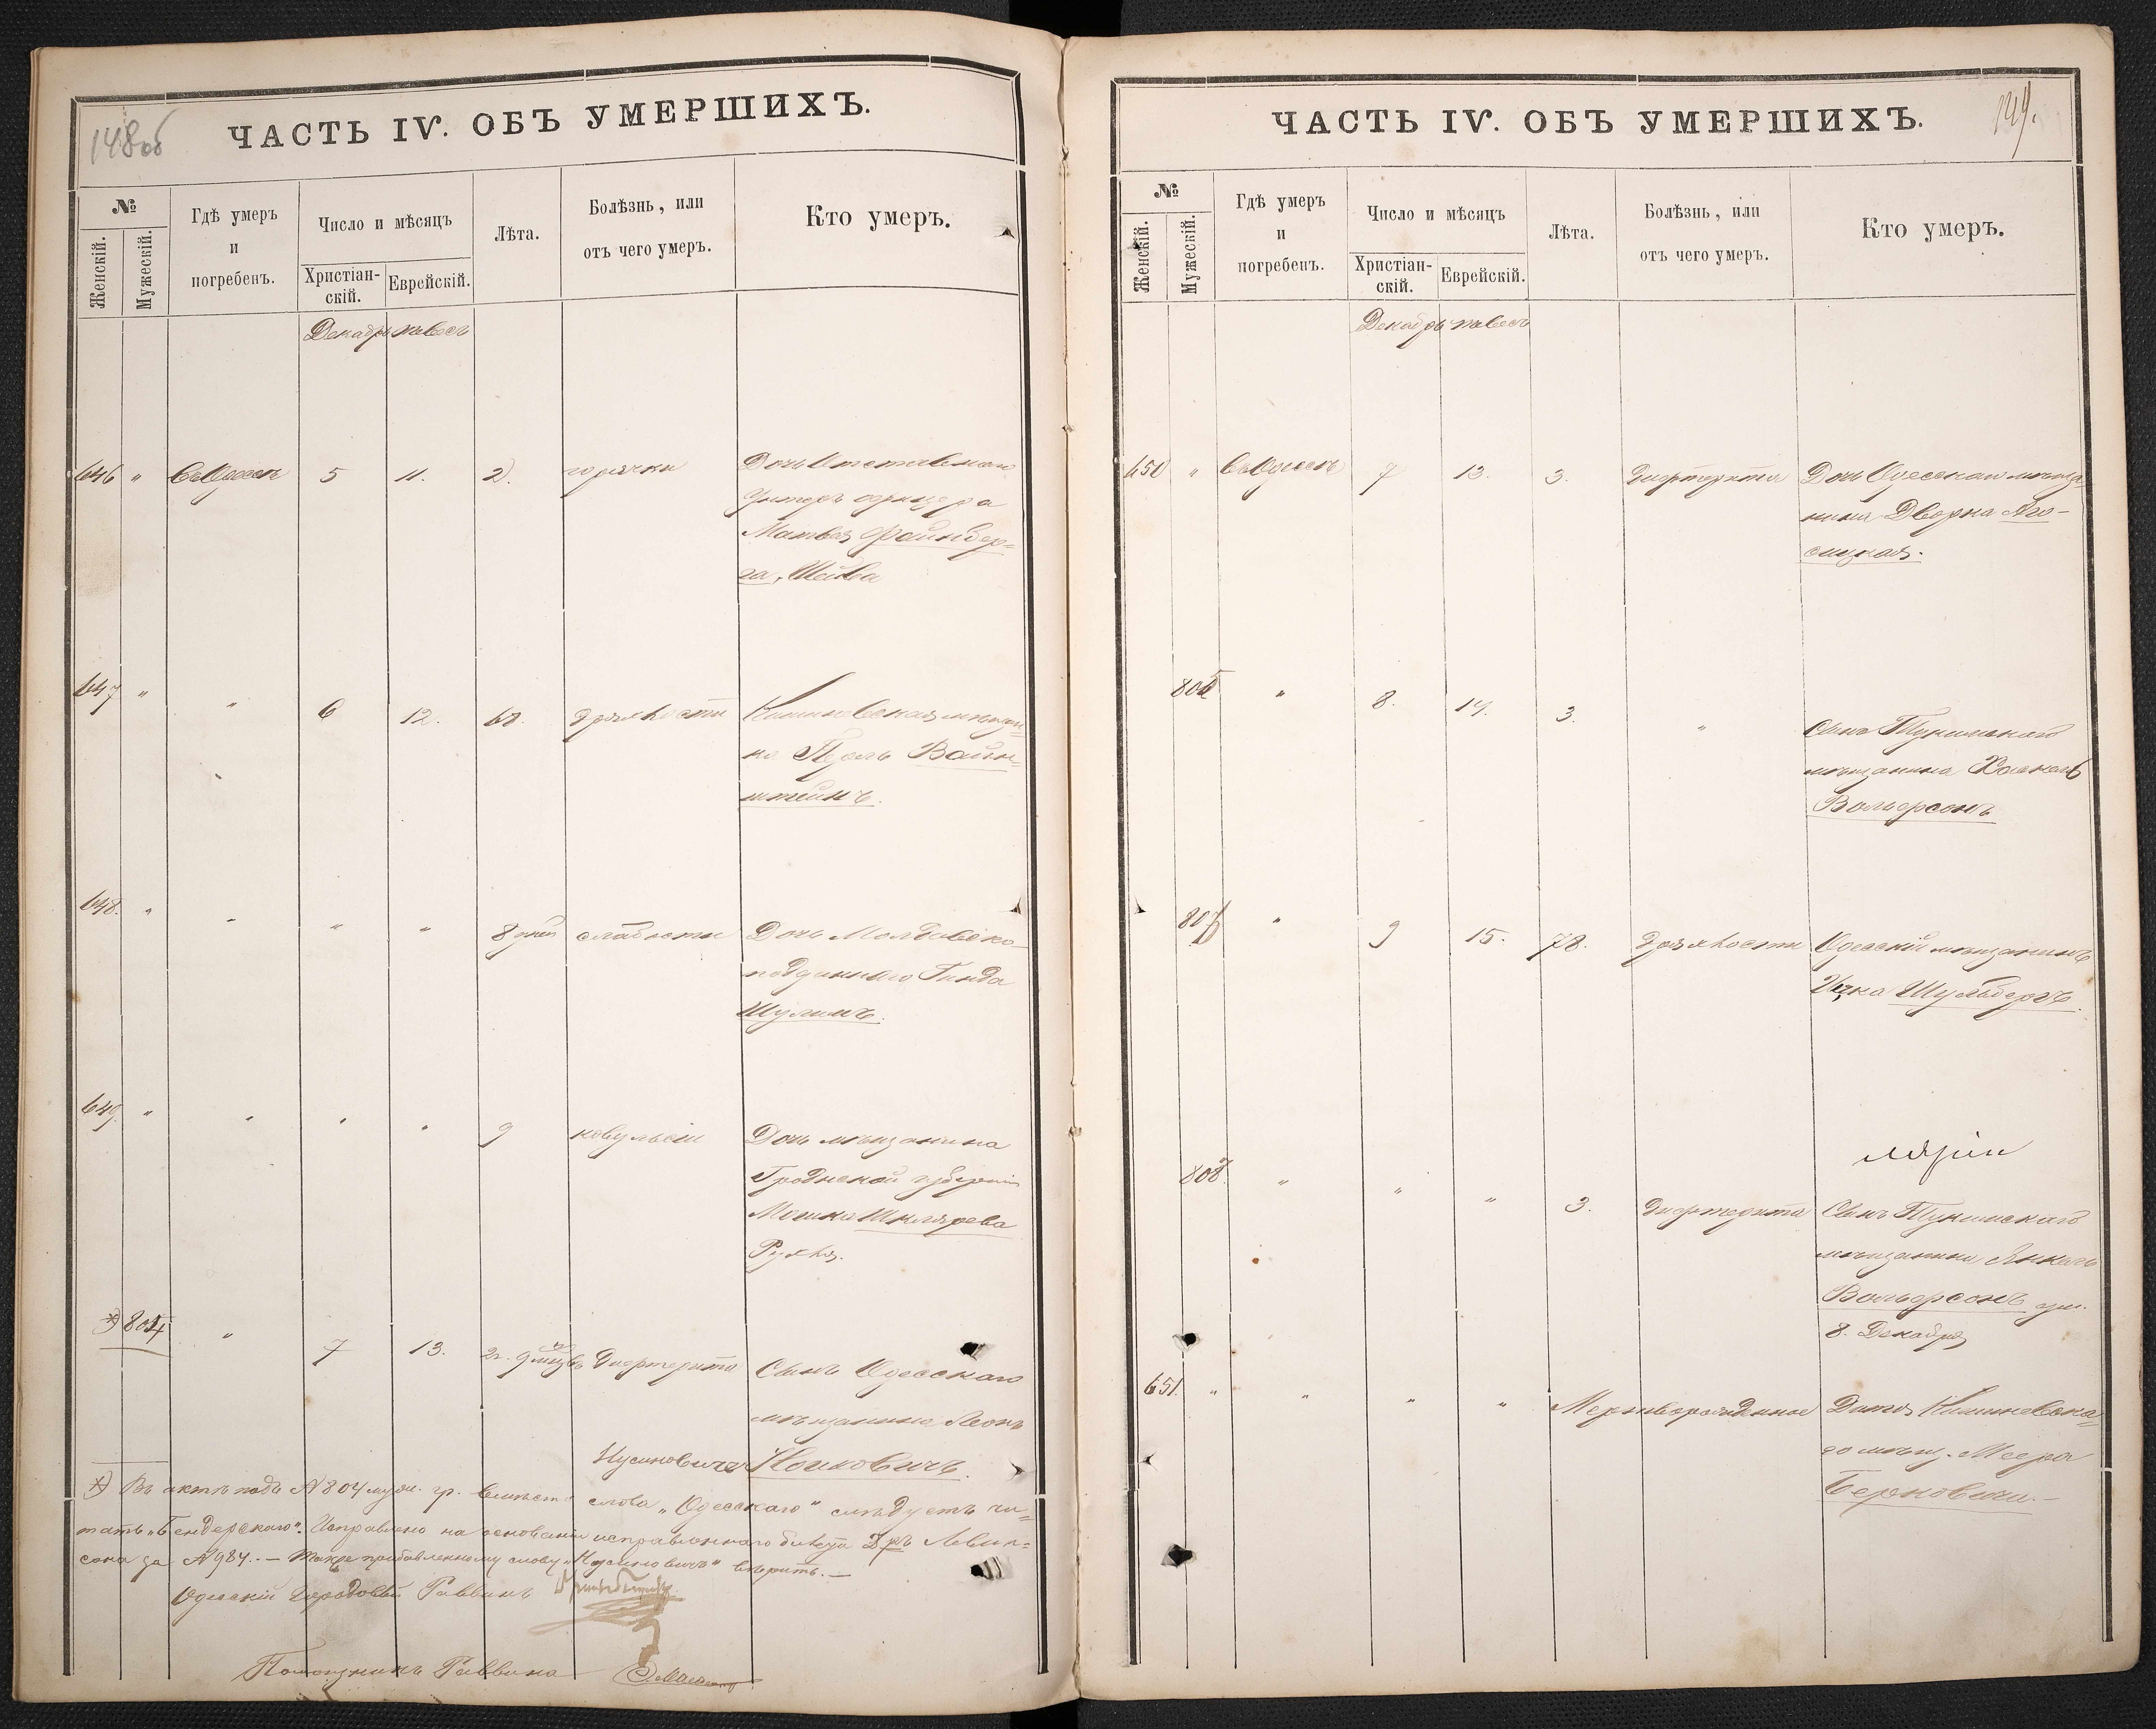 148об
ЧАСТЬ IV. ОБЪ УМЕРШИХЪ.
№
Женскій.
Мужескій.
Гдѣ умеръ
и
погребенъ.
Число и мѣсяцъ
Христіан-
скій.
Еврейскій.
Лѣта.
Болѣзнь, или
отъ чего умеръ.
Кто умеръ.
Декабрь тевесъ
646 " Въ Одессѣ 5 11. 2. горячки Дочь Отставнаго
Унтеръ офицера
Матвея Файнбер=
га, Шейва
647 " " 6 12. 68. дряхлости Кишиневская мѣщан=
ка Перль Вайн=
штейнъ.
648. " " " " 8 дней слабости Дочь Молдавско-
подданнаго Гинда
Шулимъ.
649. " " " " 9 ковульсіи Дочь мѣщанина
Гродненской губерніи
Мошка Шклярева
Рухля.
*) 804 " 7 13. 2г. 9 мѣс. Дифтерита Сынъ Одесскаго
мѣщанина Леонъ
Нусиновичъ Койховичъ.
*) Въ актѣ подъ №804 муж. гр. вмѣсто слова „Одесскаго" слѣдуетъ чи=
тать „Бендерскаго". Исправлено на основаніи исправленнаго билета Д-ръ Левин=
сона за №984. — Также прибавленному слову „Нусиновичъ" вѣрить. —
Одесскій Городовой Раввинъ
Помощникъ Раввина
149.
ЧАСТЬ IV. ОБЪ УМЕРШИХЪ.
№
Женскій.
Мужескій.
Гдѣ умеръ
и
погребенъ.
Число и мѣсяцъ
Христіан-
скій.
Еврейскій.
Лѣта.
Болѣзнь, или
отъ чего умеръ.
Кто умеръ.
Декабрь тевесъ
650 " Въ Одессѣ 7 13. 3. Дифтерита Дочь Одесскаго мѣща=
нина Дворка
805 " 8. 14. 3. " Сынъ Тукумскаго
мѣщанина Хаскель
Вольфсонъ
" 9 15. 78. дряхлости Одесскій мѣщанинъ
Ицка Шульбергъ.
" " " 3. Дифтерита Сынъ Тукумскаго
мѣщанина Янкель
Вольфсонъ ум.
8. Декабря
651. " " " " Мертворожденное Дитя Кишиневска=
го мѣщ. Меера
Берковичи.—